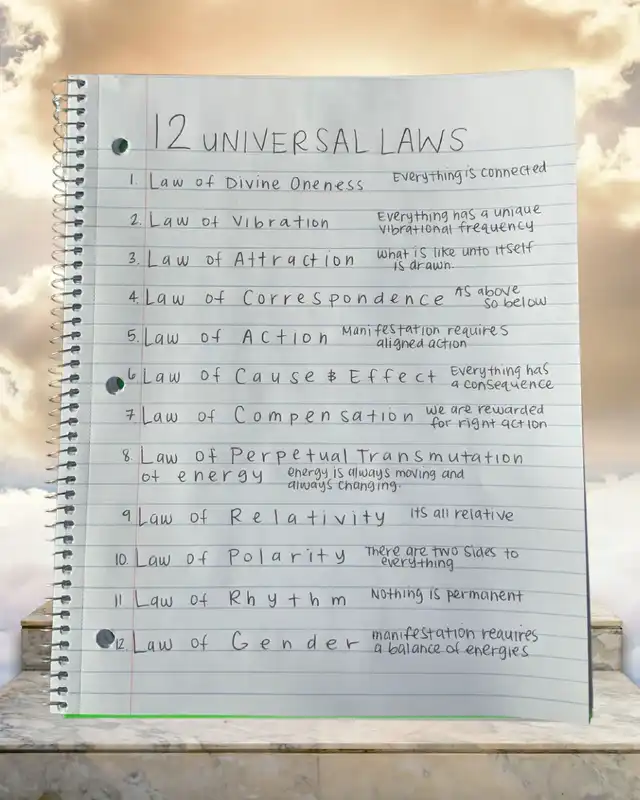 12 UNIVERSAL LAWS
1. Law of Divine Oneness Everything is connected
2. Law of Vibration Everything has a unique
vibrational frequency
3. Law of Attraction what is like unto itself
is drawn.
4. Law of Correspondence As above
so below
5. Law of Action Manifestation requires
aligned action
6 Law of Cause & Effect Everything has
a consequence
7 Law of Compensation we are rewarded
for right action
8 Law of Perpetual Transmutation
of energy energy is always moving and
always changing.
9 Law of Relativity its all relative
10. Law of Polarity There are two sides to
everything
11 Law of Rhythm Nothing is permanent
12. Law of Gender manifestation requires
a balance of energies